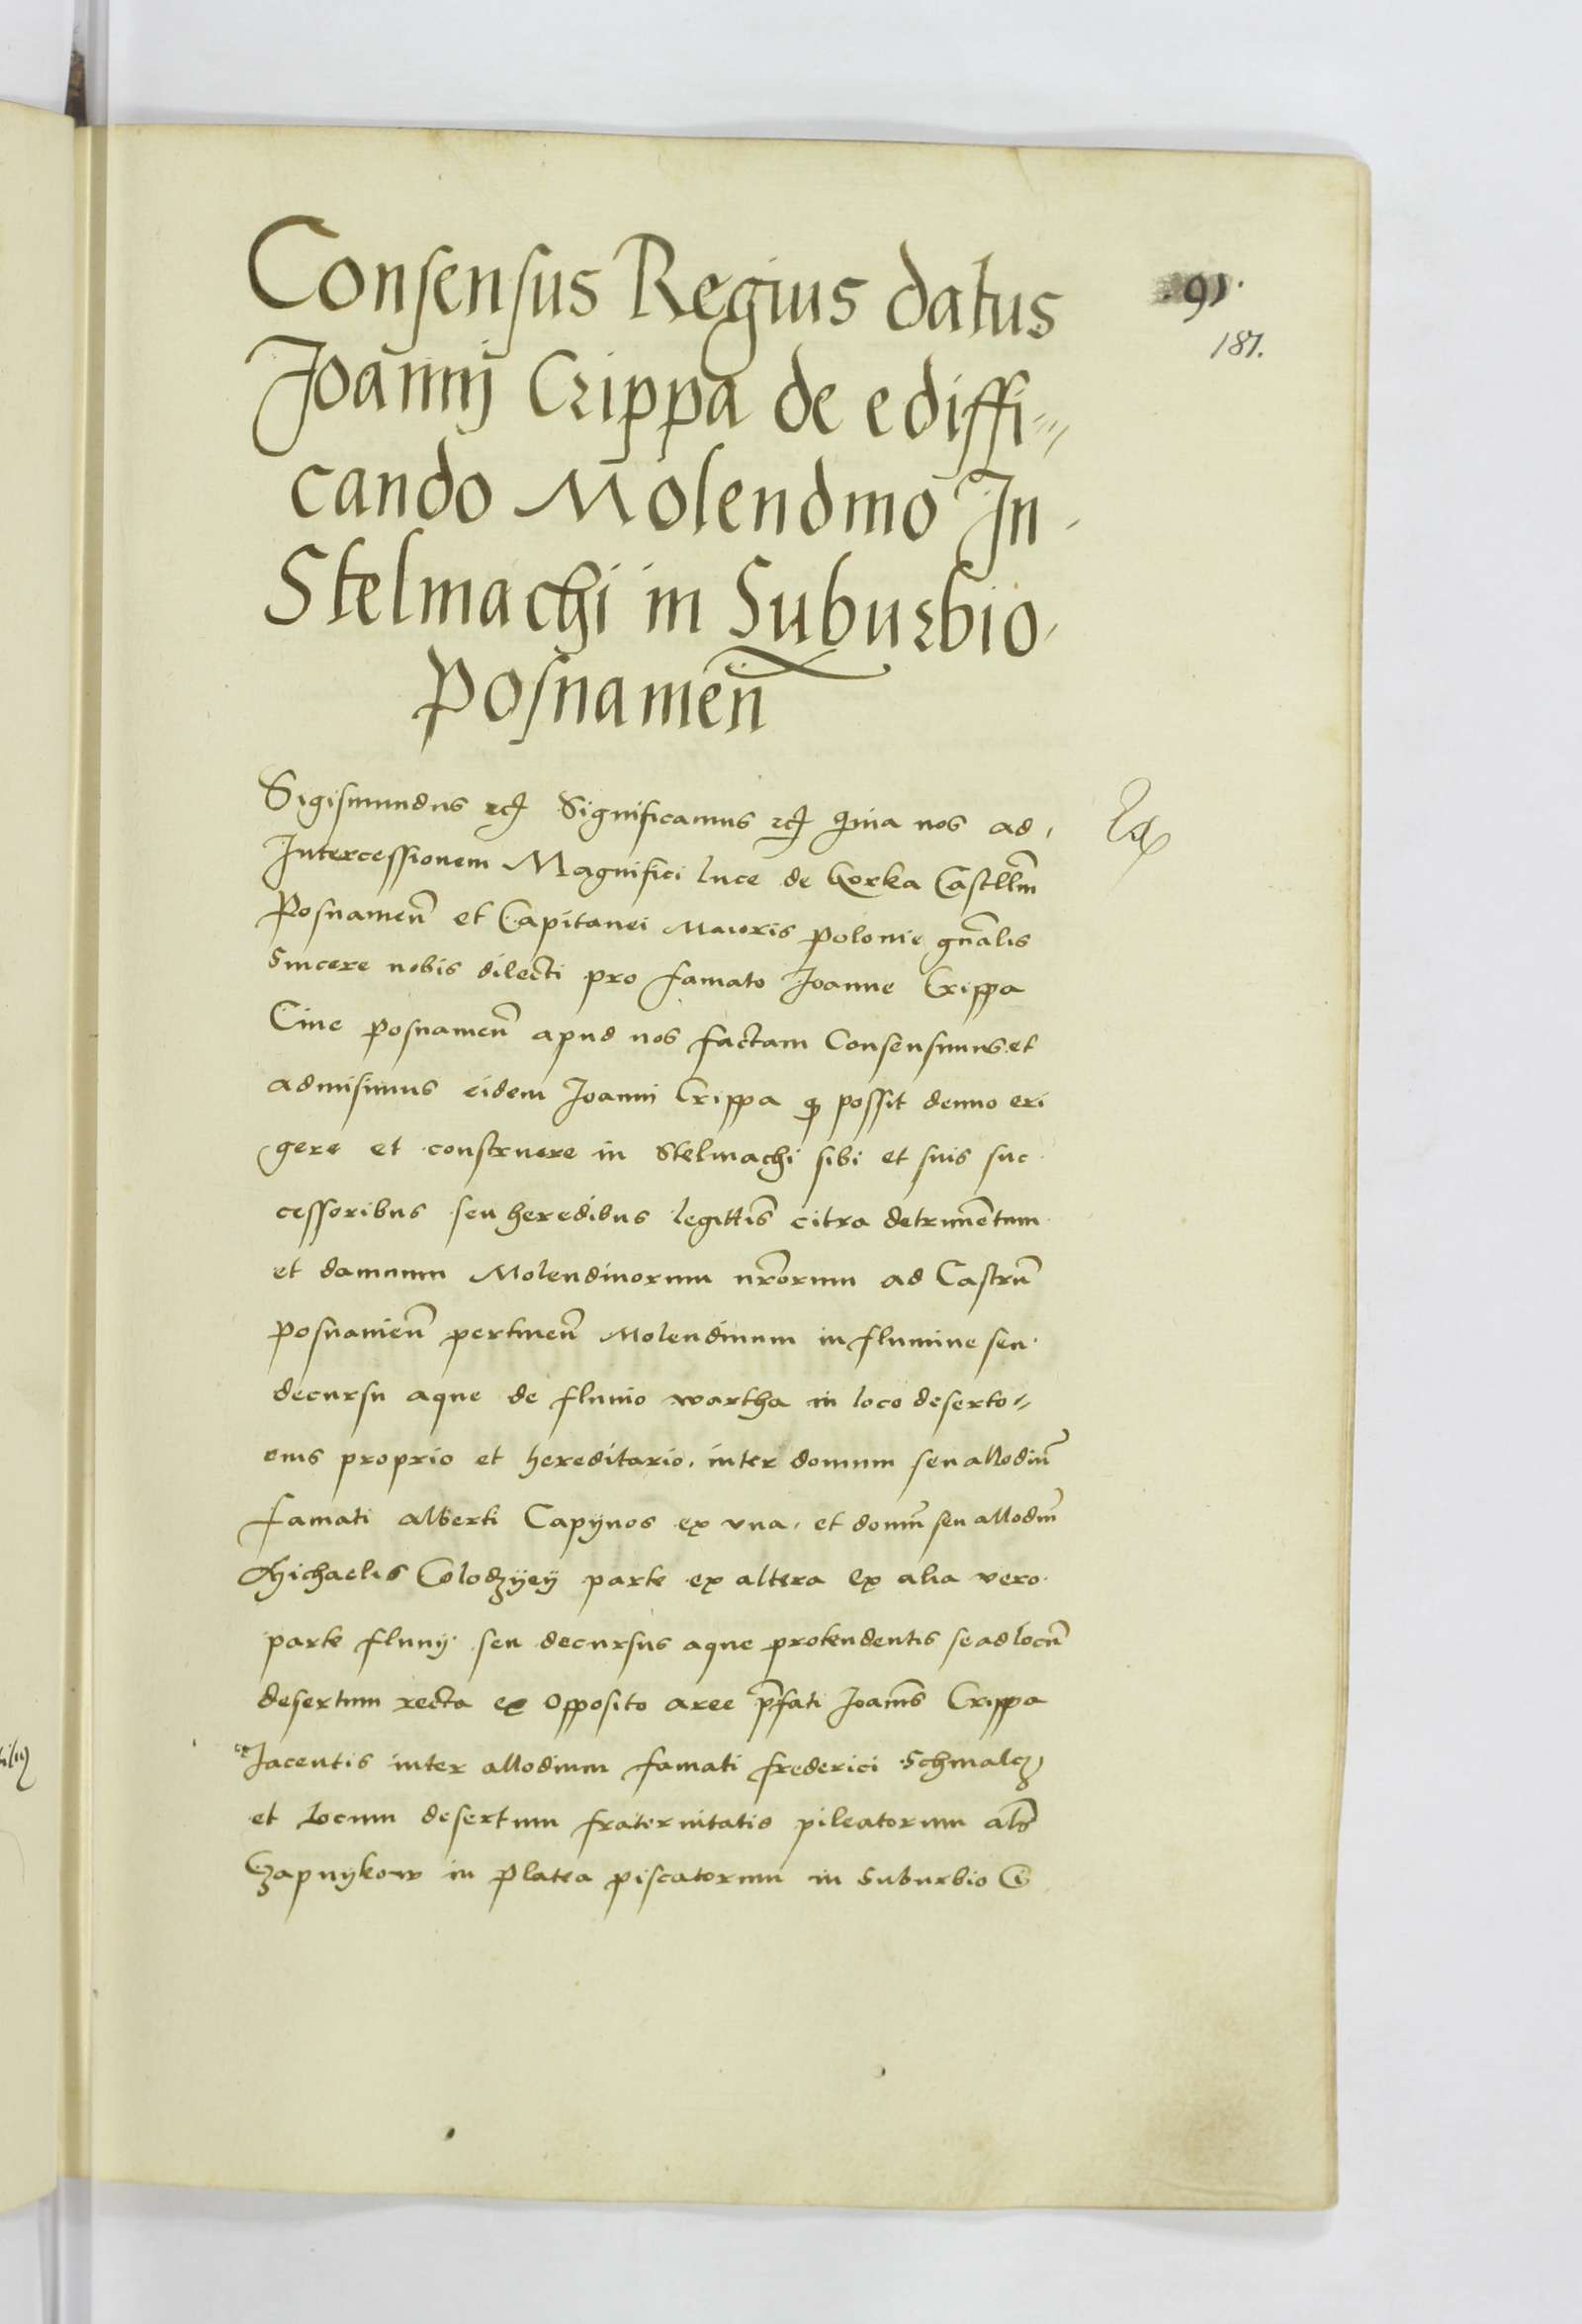 Consensus Regius datus
.91.
187.
Joannij Crippa de ediffi-
cando Molendino In
Stelmachi in Suburbio
Posnamen̄
Sigismundus etc Significamus etc Quia nos ad
Intercessionem Magnifici luce de Gorka Castlln̄
Posnamen̄ et Capitanei Maioris Polonie gn̄alis
Sincere nobis dilecti pro famato Joanne Crippa
Ciue Posnamen̄ apud nos factam Consensimus et
admisimus eidem Joanni Crippa ꝙ possit denuo eri
gere et construere in Stelmachi sibi et suis suc
cessoribus seu heredibus legittis̄ citra detrimēntum
et damnum Molendinorum nr̄orum ad Castrū
Posnanien̄ pertinen̄ Molendinum in flumine seu
decursu aque de fluuio wartha in loco deserto
eius proprio et hereditario. inter domum seu allodiū
famati alberti Capijnos ex vna. et domū seu allodiū
Michaelis Colodzijeij parte ex altera Ex alia vero
parte fluuij seu decursus aque protendentis se ad locū
desertum recta ex opposito aree p̄fati Joanīs Crippa
Jacentis inter allodium famati frederici Schmalcz
et Locum desertum fraternitatis pileatorum als̄
Czapnykow in Platea piscatorum in Suburbio